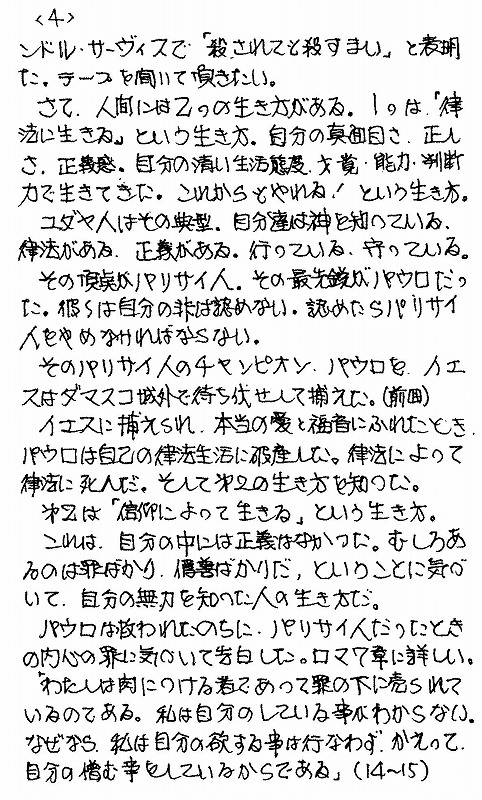 <4>
ンドル・サーヴィスで「殺されても殺すまい」と表明
た。テープを聞いて頂きたい。
さて、人間には2つの生き方がある。1つは、「律
法に生きる」という生き方。自分の真面目さ、正し
さ、正義感。自分の清い生活態度、才覚・能力・判断
力で生きてきた。これからもやれる！という生き方。
ユダヤ人はその典型。自分達は神を知っている、
律法がある、正義がある。行っている、守っている。
その頂点がパリサイ人。その最先鋭がパウロだっ
た。彼らは自分の非は認めない。認めたらパリサイ
人をやめなければならない。
そのパリサイ人のチャンピオン、パウロを、イエ
スはダマスコ城外で待ち伏せして捕えた。(前回)
イエスに捕えられ、本当の愛と福音にふれたとき、
パウロは自己の律法生活に破産した。律法によって
律法に死んだ。そして第2の生き方を知った。
第2は「信仰によって生きる」という生き方。
これは、自分の中には正義はなかった。むしろあ
るのは罪ばかり、偽善ばかりだ、ということに気づ
いて、自分の無力を知った人の生き方だ。
パウロは救われたのちに、パリサイ人だったとき
の内心の罪に気づいて告白した。ロマ7章に詳しい。
「わたしは肉につける者であって罪の下に売られて
いるのである。私は自分のしている事がわからない。
なぜなら、私は自分の欲する事は行なわず、かえって、
自分の憎む事をしているからである」(14〜15)